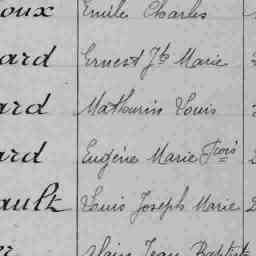 oux Emile Charles
ard Ernest Jh Marie
ard Mathurin Louis
ard Eugène Marie Fcois
ault Louis Joseph Marie
Alain Jean Baptiste